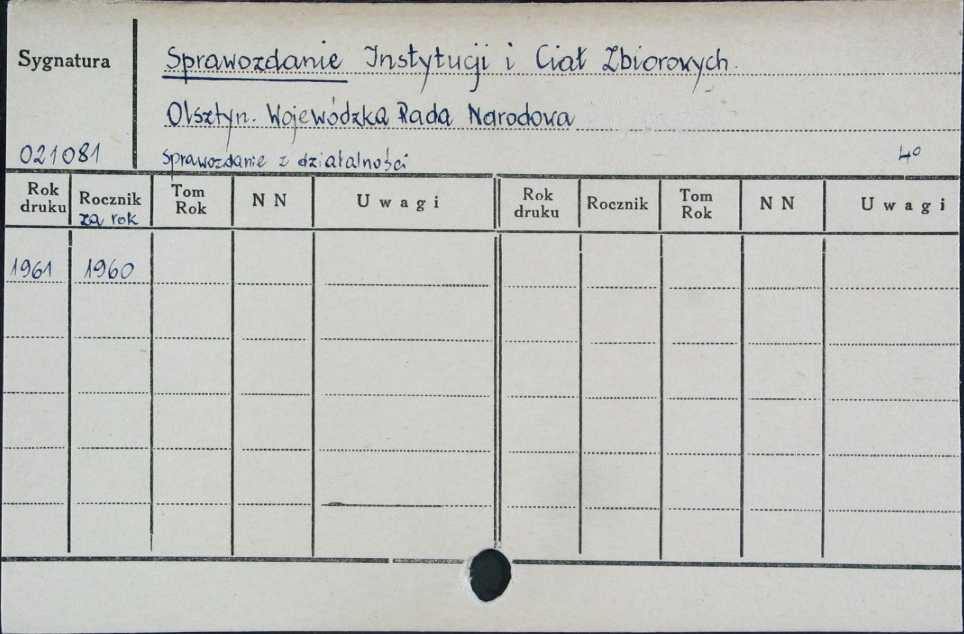 Sygnatura
Sprawozdanie Instytucji i Ciał Zbiorowych.
Olsztyn. Wojewódzka Rada Narodowa
021081 sprawozdanie z działalności 4o
Rok druku Rocznik za rok Tom Rok N N Uwagi Rok druku Rocznik Tom Rok N N Uwagi
1961 1960